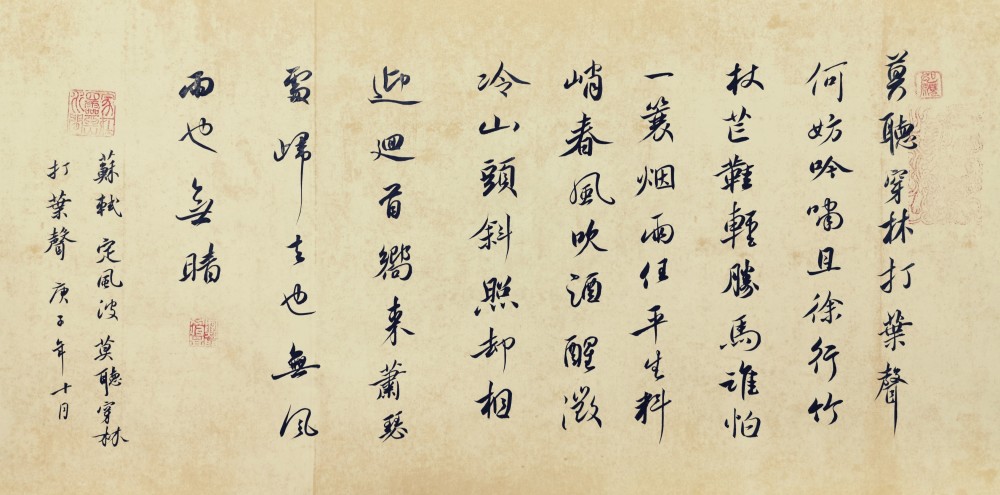 莫聽穿林打葉聲
何妨吟嘯且徐行竹
杖芒鞋輕勝馬誰怕
一蓑烟雨任平生料
峭春風吹酒醒微
冷山頭斜照却相
迎迴首嚮來蕭瑟
處歸去也無風
雨也無晴
蘇軾 定風波 莫聽穿林
打葉聲 庚子年十月